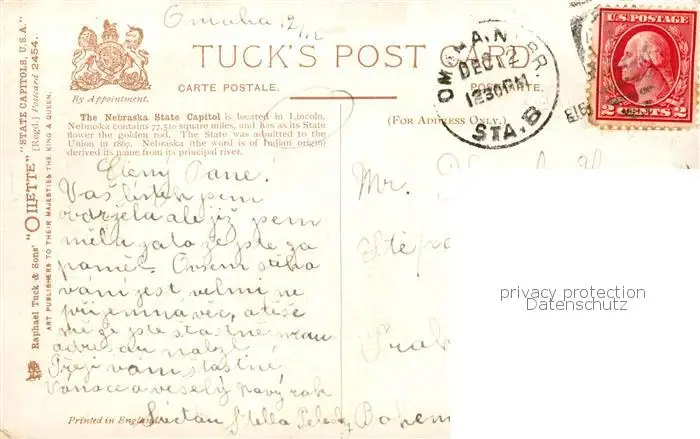 Omaha 12/12
TUCK'S POST CARD
CARTE POSTALE.
By Appointment.
OMAHA, NEBR.
DEC 12
12 30 PM
STA. B
U.S. POSTAGE
2 CENTS 2
The Nebraska State Capitol is located in Lincoln.
Nebraska contains 77,510 square miles, and has as its State
flower the golden rod. The State was admitted to the
Union in 1867. Nebraska (the word is of Indian origin)
derived its name from its principal river.
(FOR ADDRESS ONLY.)
Raphael Tuck & Sons' "OILETTE" "STATE CAPITOLS, U.S.A."
[Regd.] Postcard 2454.
ART PUBLISHERS TO THEIR MAJESTIES THE KING & QUEEN.
Ctěný Pane!
Váš lístek jsem
obdržela ale již jsem
měla za to že jste za
pomněl. Ovsem
velmi
příjemna věc, a těší
mě že jste stastně
adresu nalezl
Přeji vám stastné
Vanoce a veselý nový rok
Stella
Mr.
Bohem
Printed in England.
privacy protection
Datenschutz